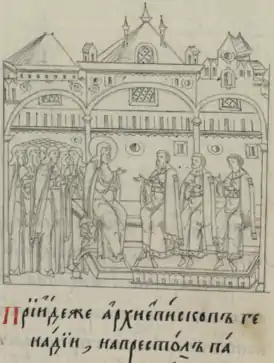 Прїидеже архиепⷭ҇ископъ ге
надїи, напрестолъ па